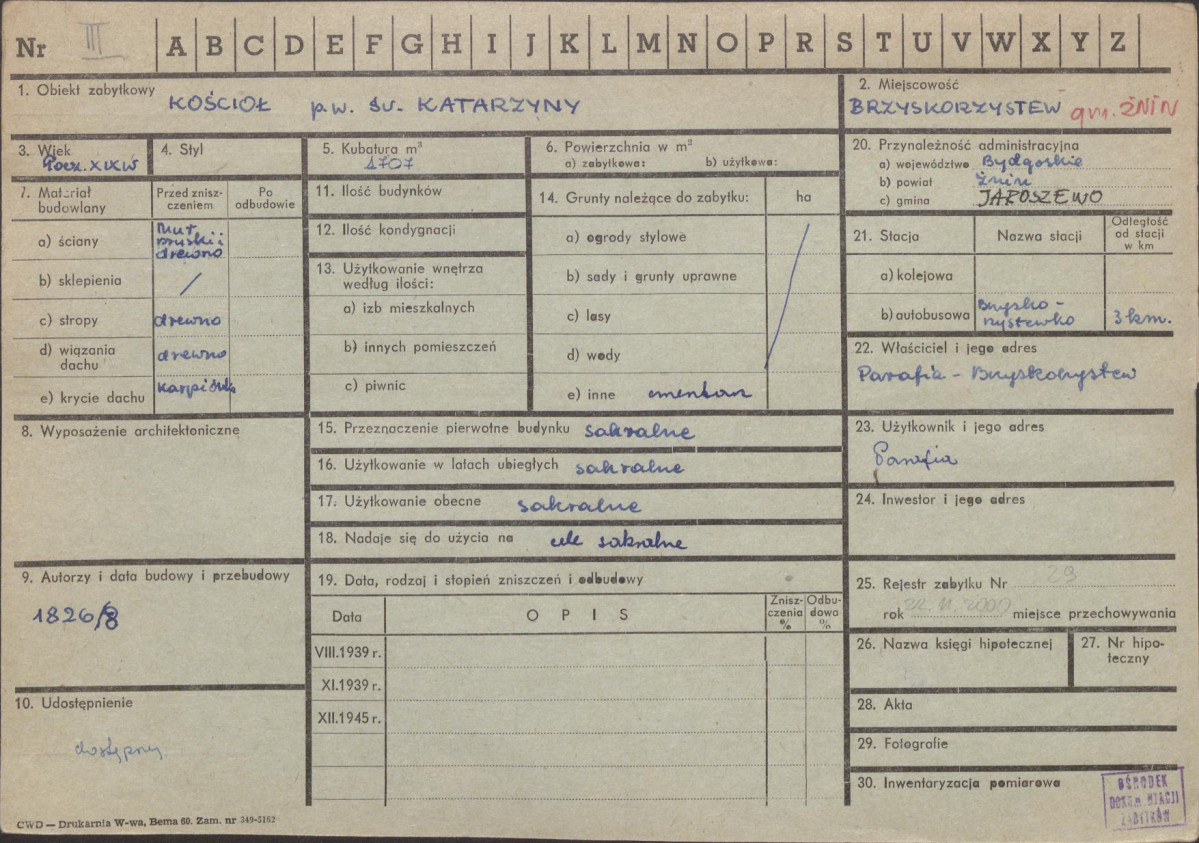 Nr III A B C D E F G H I J K L M N O P R S T U V W X Y Z
1. Obiekt zabytkowy KOŚCIOŁ p.w. św. KATARZYNY
2. Miejscowość
BRZYSKORZYSTEW gm. ŻNIN
3. Wiek
Pocz. XIX W
4. Styl
5. Kubatura m³
1707
6. Powierzchnia w m²
a) zabytkowa: b) użytkowa:
20. Przynależność administracyjna
a) województwo Bydgoskie
b) powiat Żnin
c) gmina JAROSZEWO
7. Materiał budowlany
Przed zniszczeniem
Po odbudowie
a) ściany Mur pruski i drewno
b) sklepienia /
c) stropy drewno
d) wiązania dachu drewno
e) krycie dachu karpiówka
8. Wyposażenie architektoniczne
9. Autorzy i data budowy i przebudowy
1826/8
10. Udostępnienie
dostępny
11. Ilość budynków
12. Ilość kondygnacji
13. Użytkowanie wnętrza
według ilości:
a) izb mieszkalnych
b) innych pomieszczeń
c) piwnic
14. Grunty należące do zabytku: ha
a) ogrody stylowe
b) sady i grunty uprawne
c) lasy
d) wody
e) inne cmentarz
15. Przeznaczenie pierwotne budynku sakralne
16. Użytkowanie w latach ubiegłych sakralne
17. Użytkowanie obecne sakralne
18. Nadaje się do użycia na cele sakralne
19. Data, rodzaj i stopień zniszczeń i odbudowy
Data OPIS Zniszczenia % Odbudowa %
VIII.1939 r.
XI.1939 r.
XII.1945 r.
21. Stacja Nazwa stacji Odległość od stacji w km
a) kolejowa
b) autobusowa Brzyskorzystewko 3 km.
22. Właściciel i jego adres
Parafia - Brzyskorzystew
23. Użytkownik i jego adres
Parafia
24. Inwestor i jego adres
25. Rejestr zabytku Nr 29
rok 22.11.2000 miejsce przechowywania
26. Nazwa księgi hipotecznej
27. Nr hipoteczny
28. Akta
29. Fotografie
30. Inwentaryzacja pomiarowa
OŚRODEK
DOKUMENTACJI
ZABYTKÓW
CWD — Drukarnia W-wa, Bema 60. Zam. nr 349-5162